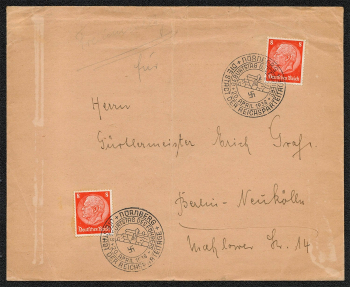 8 8
Deutsches Reich
NÜRNBERG
DIE STADT DER REICHSPARTEITAGE
für
Herrn
Gürtlermeister Erich Graf.
Berlin-Neukölln
Mahlower Str. 14
8 8
Deutsches Reich
NÜRNBERG
DIE STADT DER REICHSPARTEITAGE